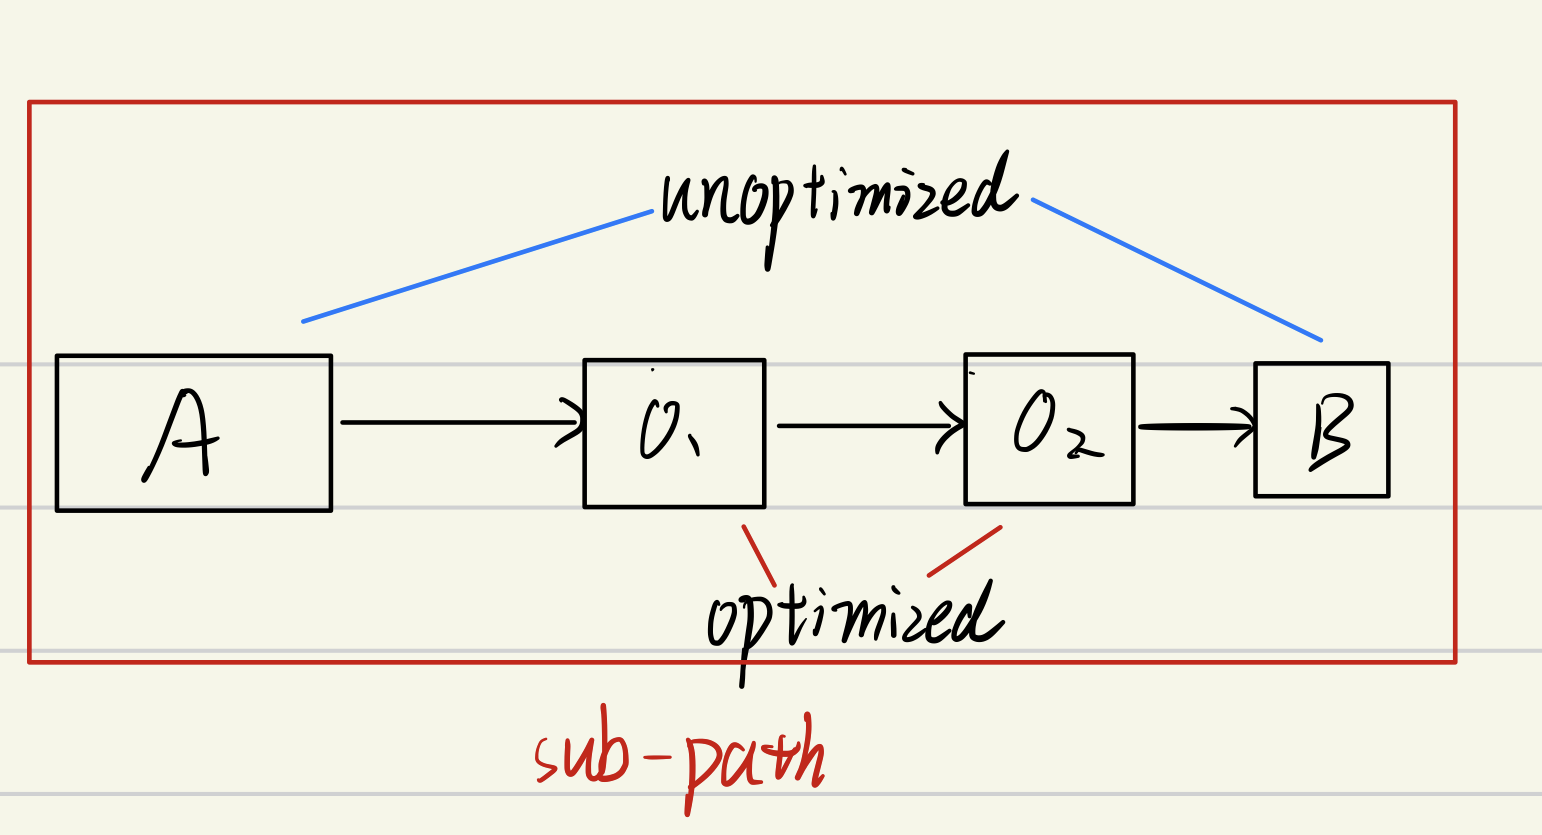 unoptimized
A O₁ O₂ B
optimized
sub-path